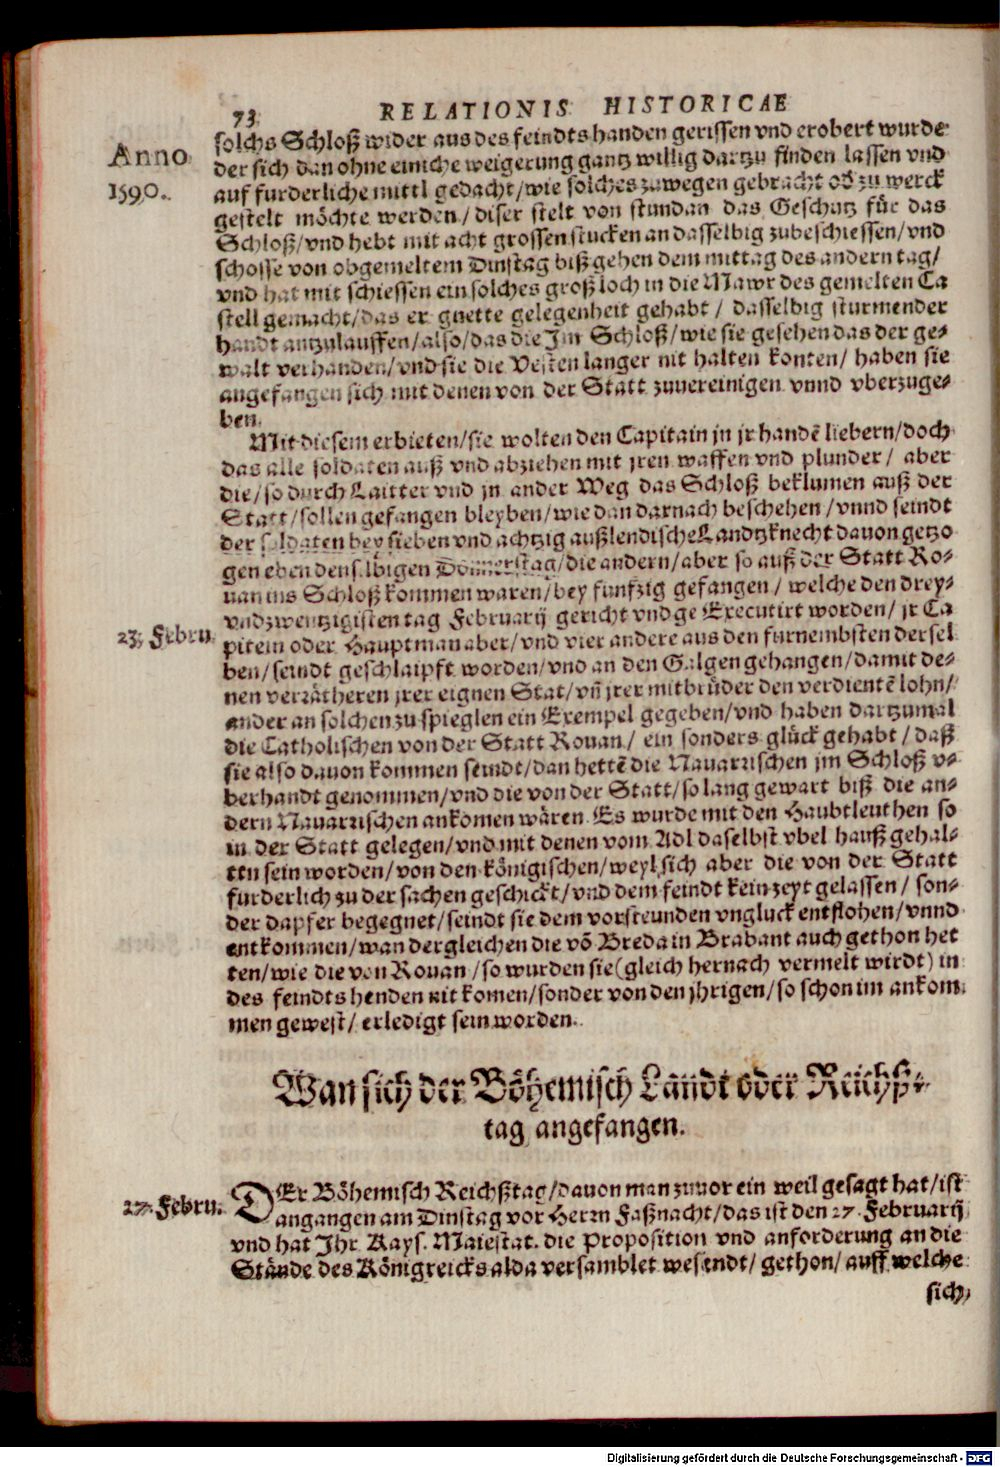 73 RELATIONIS HISTORICAE
Anno
1590.
solchs Schloß wider aus des feindts handen gerissen vnd erobert wurde
der sich dan ohne einiche weigerung gantz willig dartzu finden lassen vnd
auf furderliche mittl gedacht/wie solches zuwegen gebracht od̄ zu werck
gestelt möchte werden/diser stelt von stundan das Geschutz für das
Schloß/vnd hebt mit acht grossen stucken an dasselbig zubeschiessen/vnd
schosse von obgemeltem Dinstag biß gehen dem mittag des andern tag/
vnd hat mit schiessen ein solches groß loch in die Mawr des gemelten Ca
stell gemacht/das er guette gelegenheit gehabt/ dasselbig sturmender
handt antzulauffen/also/das die Jm Schloß/wie sie gesehen das der ge-
walt verhanden/vnd sie die Vesten langer nit halten konten/ haben sie
angefangen sich mit denen von der Statt zuuereinigen vnnd vberzuge-
ben.
Mit diesem erbieten/sie wolten den Capitain jn jr handē liebern/doch
das alle soldaten auß vnd abziehen mit jren waffen vnd plunder/ aber
die/so durch Laitter vnd jn ander Weg das Schloß beklumen auß der
Statt/sollen gefangen bleyben/wie dan darnach beschehen/vnnd seindt
der soldaten bey sieben vnd achtzig außlendische Landtzknecht dauon getzo
gen eben denselbigen Donnerstag/die andern/aber so auß der Statt Ro-
uan ins Schloß kommen waren/bey funfzig gefangen/ welche den drey-
vndzwentzigisten tag Februarij gericht vnd ge Executirt worden/ jr Ca
23. Febru.
pitein oder Hauptman aber/vnd vier andere aus den furnembsten dersel
ben/seindt geschlaipft worden/vnd an den Galgen gehangen/damit de-
nen verrätheren jrer eignen Stat/vn̄ jrer mitbrüder den verdientē lohn/
ander an solchen zu spieglen ein Exempel gegeben/vnd haben dartzumal
die Catholischen von der Statt Rouan/ ein sonders glück gehabt/daß
sie also dauon kommen seindt/dan hettē die Nauarrischen jm Schloß v-
berhandt genommen/vnd die von der Statt/so lang gewart biß die an-
dern Nauarrischen ankomen wären. Es wurde mit den Haubtleuthen so
in der Statt gelegen/vnd mit denen vom Adl daselbst vbel hauß gehal-
ten sein worden/von den königischen/weyl sich aber die von der Statt
furderlich zu der sachen geschickt/vnd dem feindt kein zeyt gelassen/ son-
der dapfer begegnet/seindt sie dem vorsteunden vngluck entflohen/vnnd
entkommen/wan dergleichen die vō Breda in Brabant auch gethon het
ten/wie die von Rouan/so wurden sie(gleich hernach vermelt wirdt) in
des feindts henden nit komen/sonder von den jhrigen/so schon im ankom.
men gewest/ erledigt sein worden.
Wan sich der Böhemisch Landt oder Reichß-
tag angefangen.
27. Febru.
DEr Böhemisch Reichßtag/dauon man zuuor ein weil gesagt hat/ist
angangen am Dinstag vor Herrn Faßnacht/das ist den 27. Februarij
vnd hat Jhr Kays. Maiestat. die Proposition vnd anforderung an die
Stände des Königreicks alda versamblet wesendt/ gethon/auff welche
sich/
Digitalisierung gefördert durch die Deutsche Forschungsgemeinschaft - DFG